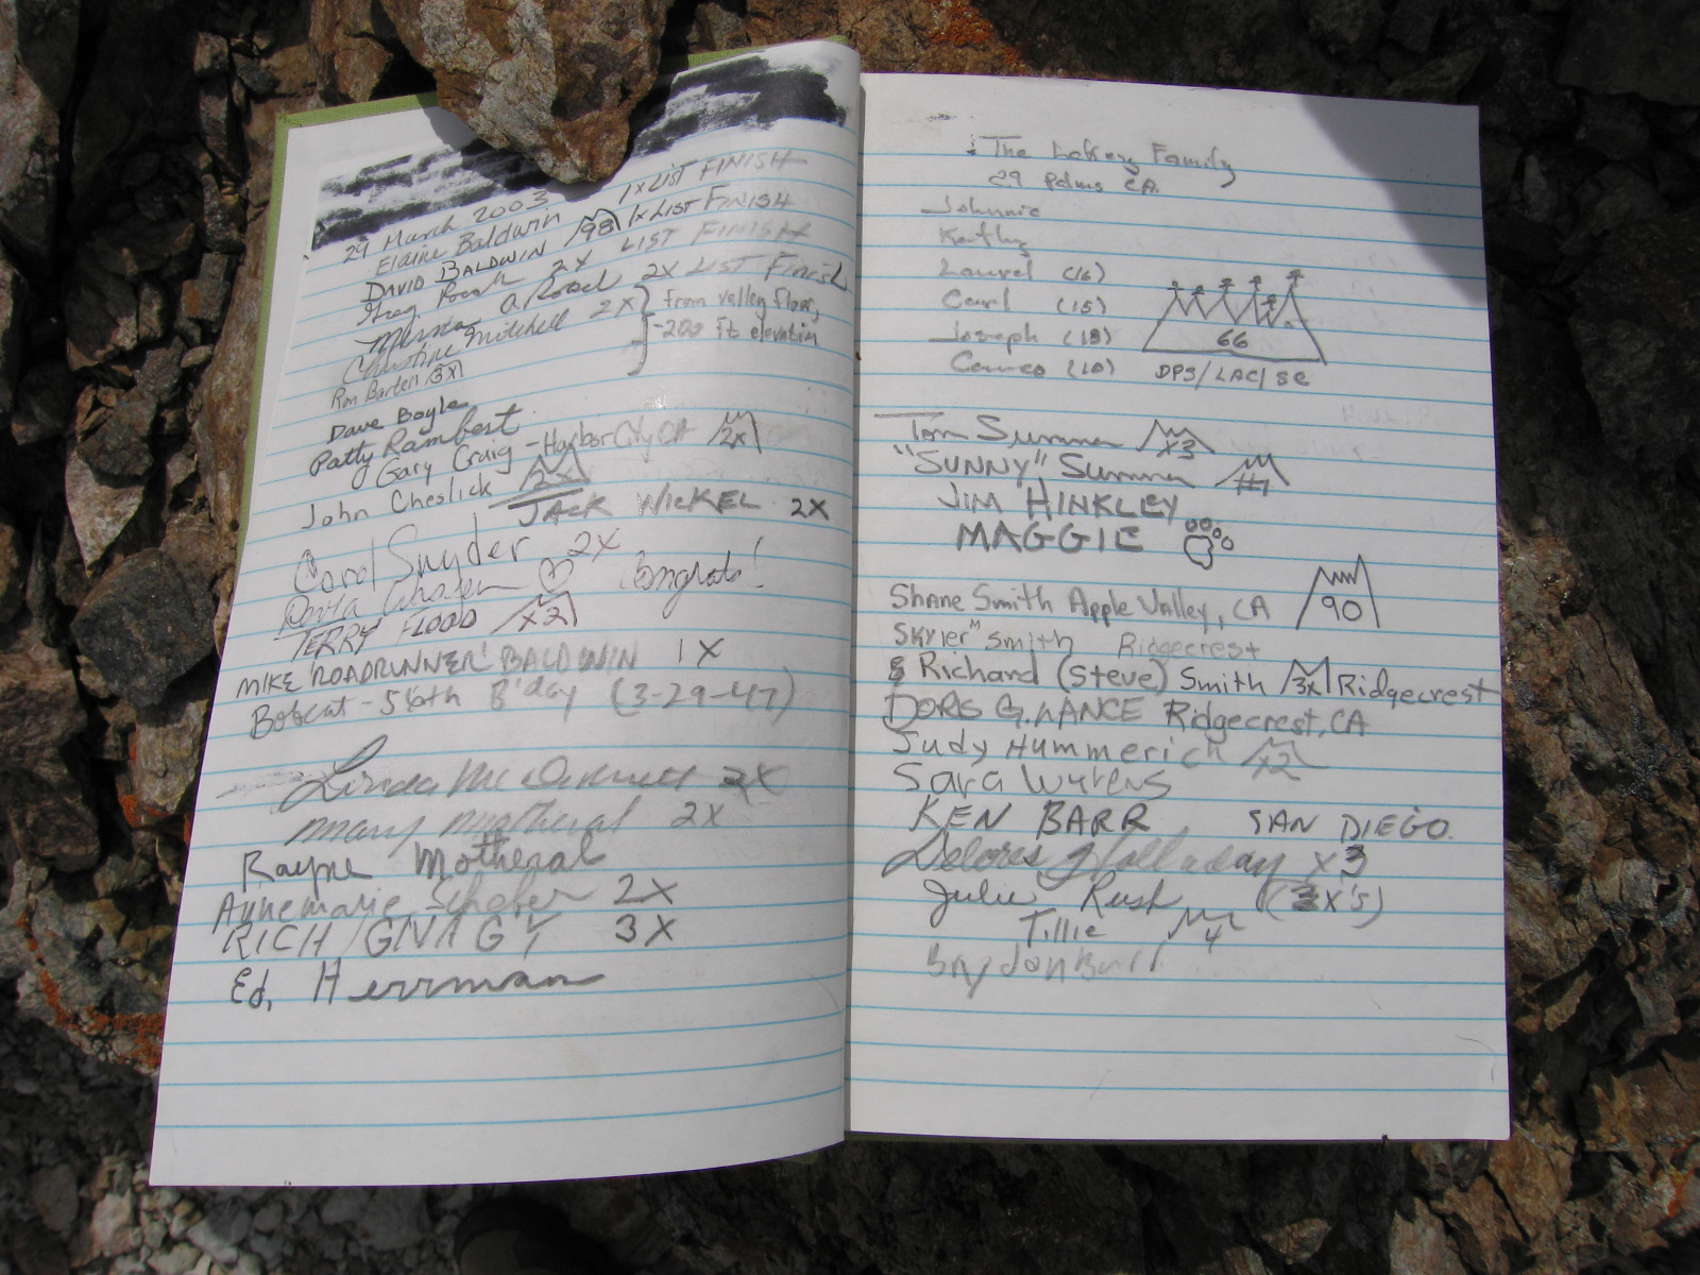 29 March 2003
Elaine Baldwin 1x LIST FINISH
DAVID BALDWIN 98 1x LIST FINISH
Greg 2x LIST FINISH
2X LIST FINISH
Christine Mitchell 2x from valley floor,
Ron Barten 3X -200 ft elevation
Dave Boyle
Patty Rambert
Gary Craig - Harbor City CA 2x
John Cheslick 2x
JACK WICKEL 2X
Carol Snyder 2X
Congrats!
TERRY FLOOD x2
MIKE 'ROADRUNNER' BALDWIN 1X
Bobcat - 56th B'day (3-29-47)
Linda 2X
Mary Motheral 2X
Rayne Motheral
Annemarie Schober 2X
RICH GNAGY 3X
Ed, Herrman
The Family
29 Palms CA.
Johnnie
Kathy
Laurel (16)
Carl (15)
Joseph (13)
(10)
66
DPS/LAC/SC
Tom Summer x3
"SUNNY" Summer #1
JIM HINKLEY
MAGGIE
Shane Smith Apple Valley, CA 90
Skyler Smith Ridgecrest
& Richard (Steve) Smith 3x Ridgecrest
DORIS G. LANCE Ridgecrest, CA
Judy Hummerich x2
Sara Wyrens
KEN BARR SAN DIEGO.
Delores Holladay x3
Julie Rush (3X's)
Tillie 4